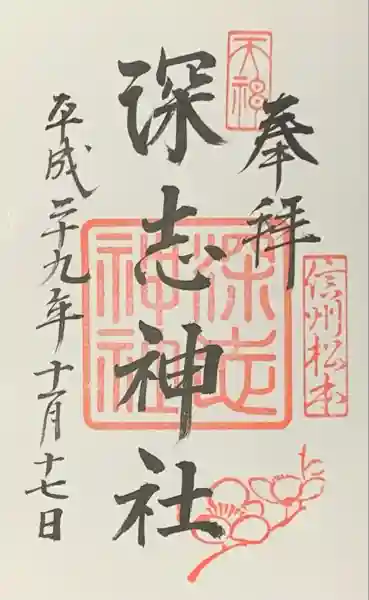 奉拝
天神
信州松本
深志神社
深志神社
平成二十九年十一月十七日